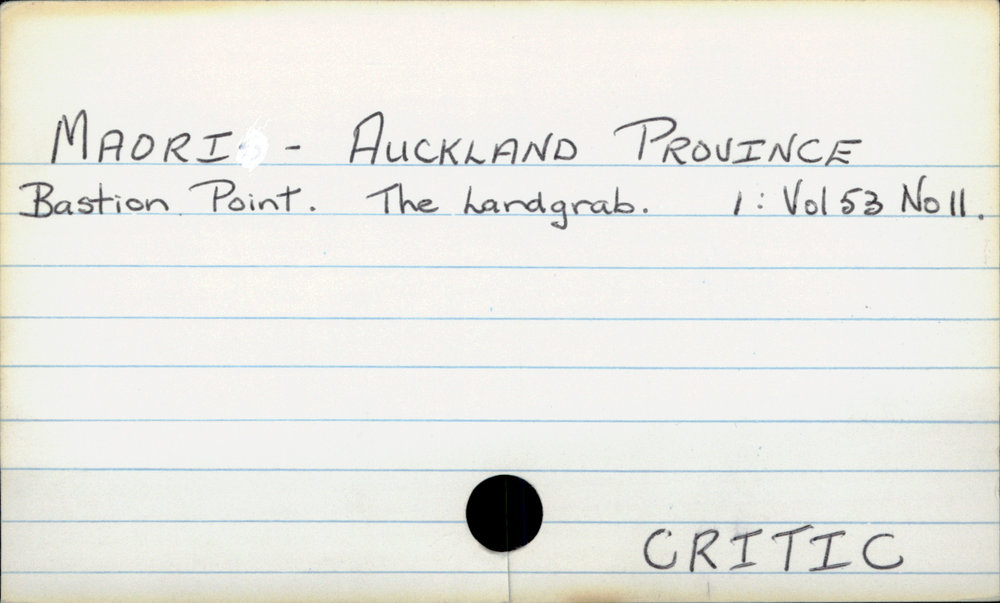 MAORI - AUCKLAND PROVINCE
Bastion Point. The Landgrab. 1: Vol 53 No 11.
CRITIC